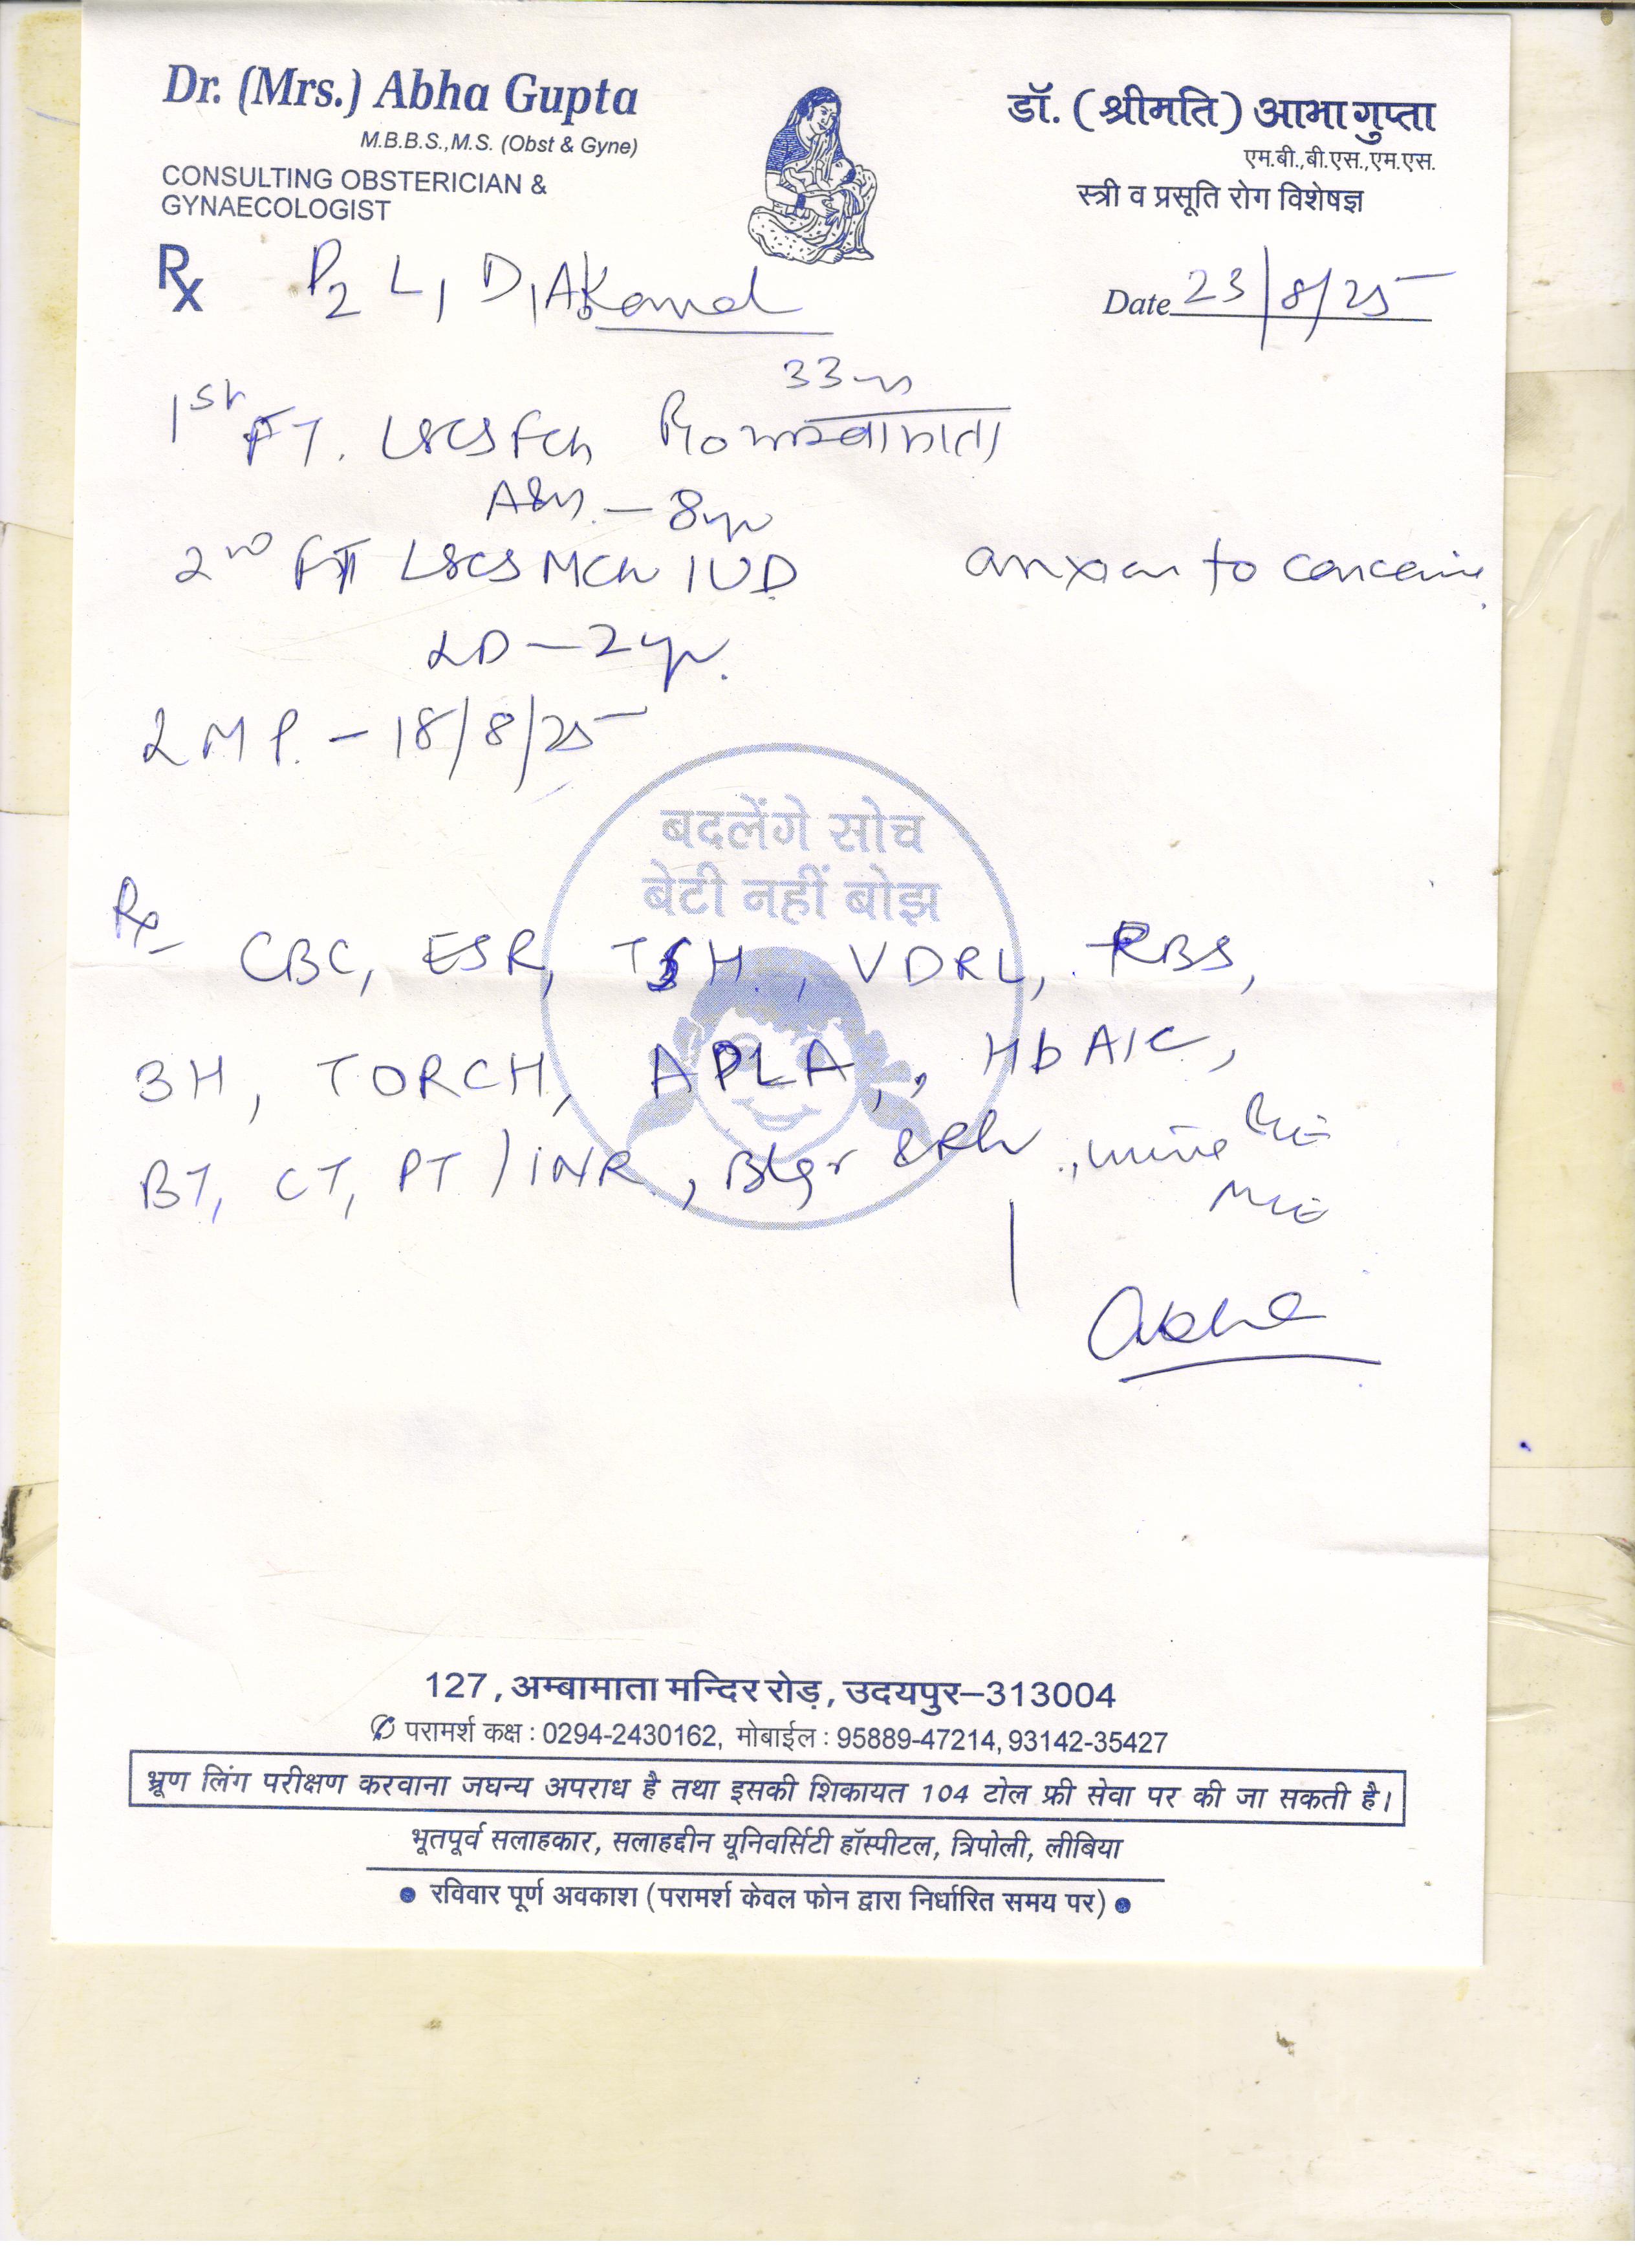 Dr. (Mrs.) Abha Gupta
M.B.B.S.,M.S. (Obst & Gyne)
CONSULTING OBSTERICIAN &
GYNAECOLOGIST
डॉ. (श्रीमति) आभा गुप्ता
एम.बी.,बी.एस.,एम.एस.
स्त्री व प्रसूति रोग विशेषज्ञ
Rx P2 L1 D1 A0
Date 23/8/25
33
1st FT. LSCS Fch
8yr
2nd FT LSCS MCh IUD anxious to conceive
LD - 2yr.
LMP. - 18/8/25
बदलेंगे सोच
बेटी नहीं बोझ
Rx
CBC, ESR, TSH, VDRL, RBS,
3H, TORCH, APLA,, HbA1C,
BT, CT, PT / INR, Bl gr & Rh, urine
Abha
127, अम्बामाता मन्दिर रोड़, उदयपुर–313004
परामर्श कक्ष : 0294-2430162, मोबाईल : 95889-47214, 93142-35427
भ्रूण लिंग परीक्षण करवाना जघन्य अपराध है तथा इसकी शिकायत 104 टोल फ्री सेवा पर की जा सकती है।
भूतपूर्व सलाहकार, सलाहद्दीन यूनिवर्सिटी हॉस्पीटल, त्रिपोली, लीबिया
• रविवार पूर्ण अवकाश (परामर्श केवल फोन द्वारा निर्धारित समय पर) •